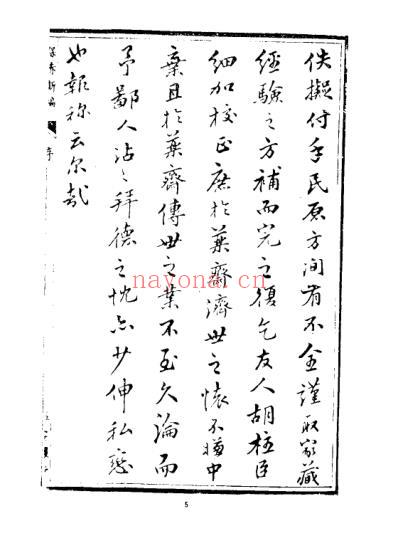 佚擬付手民原方間有不全謹取家藏
經驗之方補而完之復乞友人胡桂臣
細加校正庶於葉齋濟世之懷不
中
棄且於葉齋傳世之業不至久淪而
予鄙人沾之拜德之忱亦少伸私
也報
云尔哉
保赤新編
序
nayona.cn
5